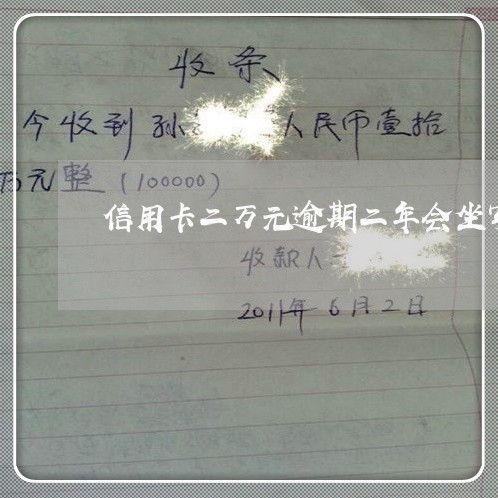 收条
今收到孙 人民币壹拾
万元整(100000)
信用卡二万元逾期二年会坐
收款人
2011年6月2日